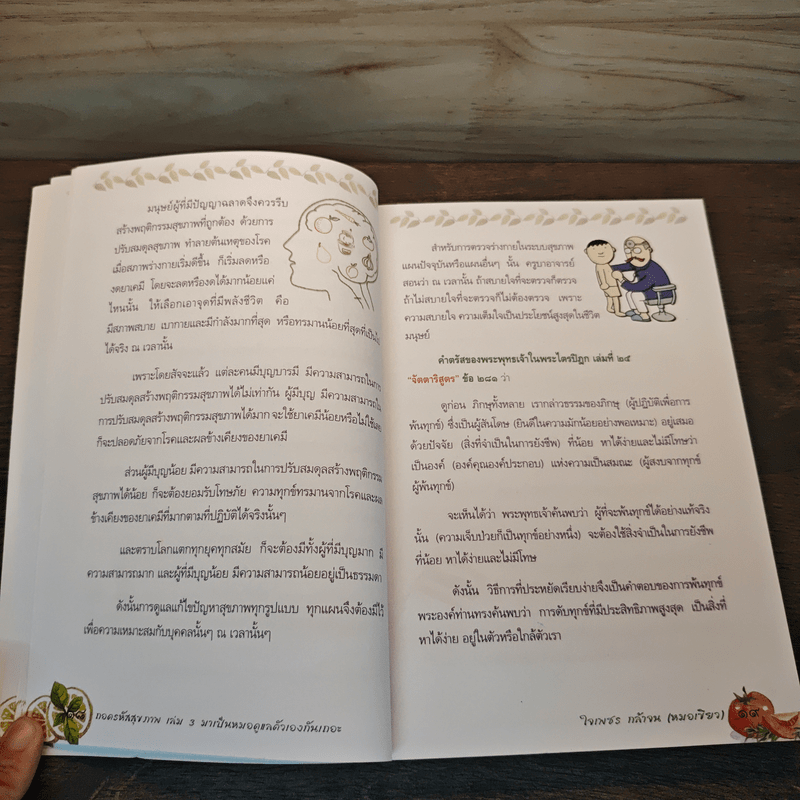 มนุษย์ผู้ที่มีปัญญาฉลาดจึงควรรีบ
สร้างพฤติกรรมสุขภาพที่ถูกต้อง ด้วยการ
ปรับสมดุลสุขภาพ ทำลายต้นเหตุของโรค
เมื่อสภาพร่างกายเริ่มดีขึ้น ก็เริ่มลดหรือ
งดยาเคมี โดยจะลดหรืองดได้มากน้อยแค่
ไหนนั้น ให้เลือกเอาจุดที่มีพลังชีวิต คือ
มีสภาพสบาย เบากายและมีกำลังมากที่สุด หรือทรมานน้อยที่สุดที่เป็นไป
ได้จริง ณ เวลานั้น
เพราะโดยสัจจะแล้ว แต่ละคนมีบุญบารมี มีความสามารถในการ
ปรับสมดุลสร้างพฤติกรรมสุขภาพได้ไม่เท่ากัน ผู้มีบุญ มีความสามารถใน
การปรับสมดุลสร้างพฤติกรรมสุขภาพได้มาก จะใช้ยาเคมีน้อยหรือไม่ใช้เลย
ก็จะปลอดภัยจากโรคและผลข้างเคียงของยาเคมี
ส่วนผู้มีบุญน้อย มีความสามารถในการปรับสมดุลสร้างพฤติกรรม
สุขภาพได้น้อย ก็จะต้องยอมรับโทษภัย ความทุกข์ทรมานจากโรคและผล
ข้างเคียงของยาเคมีที่มากตามที่ปฏิบัติได้จริงนั้นๆ
และตราบโลกแตกทุกยุคทุกสมัย ก็จะต้องมีทั้งผู้ที่มีบุญมาก มี
ความสามารถมาก และผู้ที่มีบุญน้อย มีความสามารถน้อยอยู่เป็นธรรมดา
ดังนั้นการดูแลแก้ไขปัญหาสุขภาพทุกรูปแบบ ทุกแผนจึงต้องมีไว้
เพื่อความเหมาะสมกับบุคคลนั้นๆ ณ เวลานั้นๆ
๑๘ ถอดรหัสสุขภาพ เล่ม 3 มาเป็นหมอดูแลตัวเองกันเถอะ
สำหรับการตรวจร่างกายในระบบสุขภาพ
แผนปัจจุบันหรือแผนอื่นๆ นั้น ครูบาอาจารย์
สอนว่า ณ เวลานั้น ถ้าสบายใจที่จะตรวจก็ตรวจ
ถ้าไม่สบายใจที่จะตรวจก็ไม่ต้องตรวจ เพราะ
ความสบายใจ ความเต็มใจเป็นประโยชน์สูงสุดในชีวิต
มนุษย์
คำตรัสของพระพุทธเจ้าในพระไตรปิฎก เล่มที่ ๒๕
"จัตตาริสูตร" ข้อ ๒๘๑ ว่า
ดูก่อน ภิกษุทั้งหลาย เรากล่าวธรรมของภิกษุ (ผู้ปฏิบัติเพื่อการ
พ้นทุกข์) ซึ่งเป็นผู้สันโดษ (ยินดีในความมักน้อยอย่างพอเหมาะ) อยู่เสมอ
ด้วยปัจจัย (สิ่งที่จำเป็นในการยังชีพ) ที่น้อย หาได้ง่ายและไม่มีโทษว่า
เป็นองค์ (องค์คุณองค์ประกอบ) แห่งความเป็นสมณะ (ผู้สงบจากทุกข์
ผู้พ้นทุกข์)
จะเห็นได้ว่า พระพุทธเจ้าค้นพบว่า ผู้ที่จะพ้นทุกข์ได้อย่างแท้จริง
นั้น (ความเจ็บป่วยก็เป็นทุกข์อย่างหนึ่ง) จะต้องใช้สิ่งจำเป็นในการยังชีพ
ที่น้อย หาได้ง่ายและไม่มีโทษ
ดังนั้น วิธีการที่ประหยัดเรียบง่ายจึงเป็นคำตอบของการพ้นทุกข์
พระองค์ท่านทรงค้นพบว่า การดับทุกข์ที่มีประสิทธิภาพสูงสุด เป็นสิ่งที่
หาได้ง่าย อยู่ในตัวหรือใกล้ตัวเรา
ใจเพชร กล้าจน (หมอเขียว) ๑๙